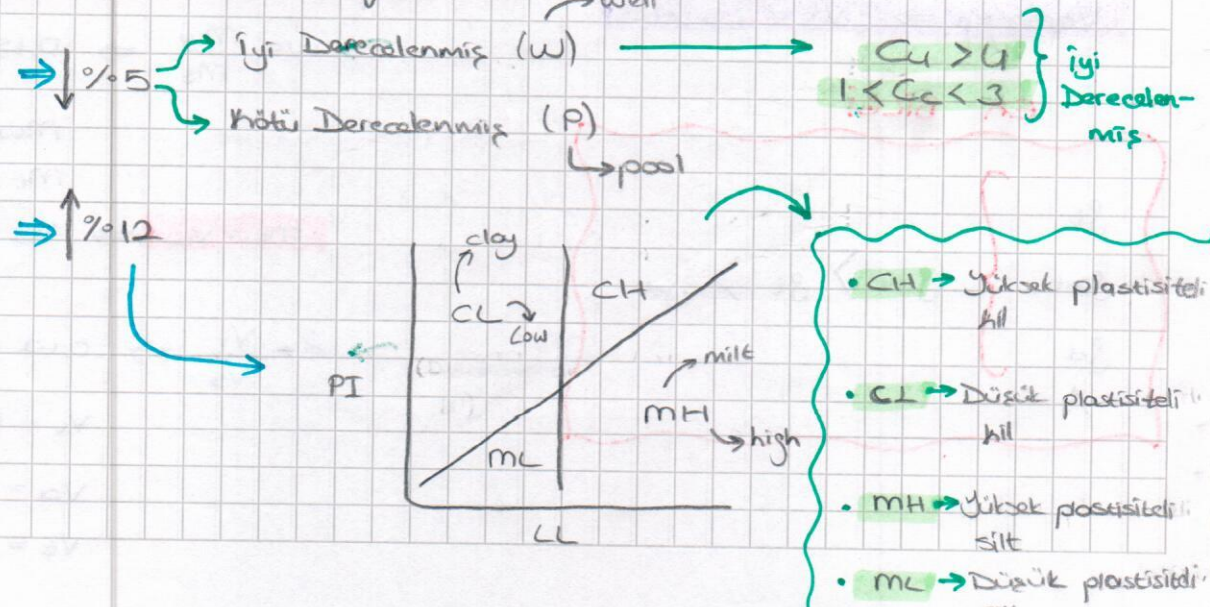 well
↓ %5
İyi Derecelenmiş (W) → Cu > 4
1 < Cc < 3
İyi
Derecelen-
miş
Kötü Derecelenmiş (P)
pool
↑ %12
clay
CL
Low
CH
PI
milt
MH
high
ML
LL
• CH → Yüksek plastisiteli
kil
• CL → Düşük plastisiteli
kil
• MH → Yüksek plastisiteli
silt
• ML → Düşük plastisiteli